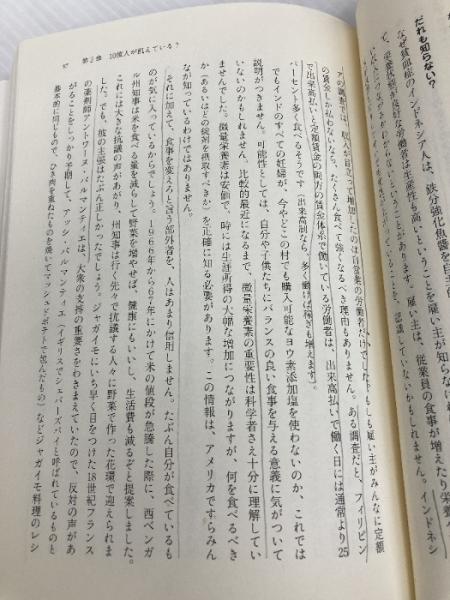 97　第2章　10億人が飢えている？
だれも知らない？
なぜ貧血症のインドネシア人は、鉄分強化魚醤を自主的
て、栄養状態が良好な労働者は生産性も高いということを雇い主が知らな
ということがあります。雇い主は、従業員の食事が増えたり栄養
を、認識していないかもしれません。インドネシ
アの調査では、収入が目立って増加したのは自営業の労働者だけで
も雇い主がみんなに定額
の賃金しか払わないなら、たくさん食べて強くなるべき理由もありません。ある調査だと、フィリピン
で出来高払いと定額賃金の両方の賃金体系で働いている労働者は、出来高払いで働く日には通常より25
パーセント多く食べるそうです（出来高制なら、多く働けば稼ぎも増えます）。
でもインドのすべての妊婦が、今やどこの村でも購入可能なヨウ素添加塩を使わないのか、これでは
説明がつきません。可能性としては、自分や子供たちにバランスの良い食事を与える意義に気がついて
いないのかもしれません。比較的最近になるまで、微量栄養素の重要性は科学者さえ十分に理解してい
ませんでした。微量栄養素は安価で、時には生涯所得の大幅な増加につながりますが、何を食べるべき
か（あるいはどの錠剤を摂取すべきか）を正確に知る必要があります。この情報は、アメリカですらみん
なが知っているわけではありません。
それに加えて、食事を変えろと言う部外者を、人はあまり信用しません。たぶん自分が食べているも
のが気に入っているからでしょう。1966年から67年にかけて米の値段が急騰した際に、西ベンガ
ル州知事は米を食べる量を減らして野菜を増やせば、健康にもいいし、生活費も減るぞと提案しました。
これには大きな抗議の声があがり、州知事は行く先々で抗議する人々に野菜で作った花環で迎えられま
した。でも、彼の主張はたぶん正しかったでしょう。ジャガイモにいち早く目をつけた18世紀フランス
の薬剤師アントワーヌ・パルマンティエは、大衆の支持の重要さをわきまえていたので、反対の声があ
がることをしっかり予期して、アッシ・パルマンティエ（イギリスでシェパーズパイと呼ばれているものと
基本的に同じもので、ひき肉を重ねたものを焼いてマッシュドポテトで包んだもの）などジャガイモ料理のレシ